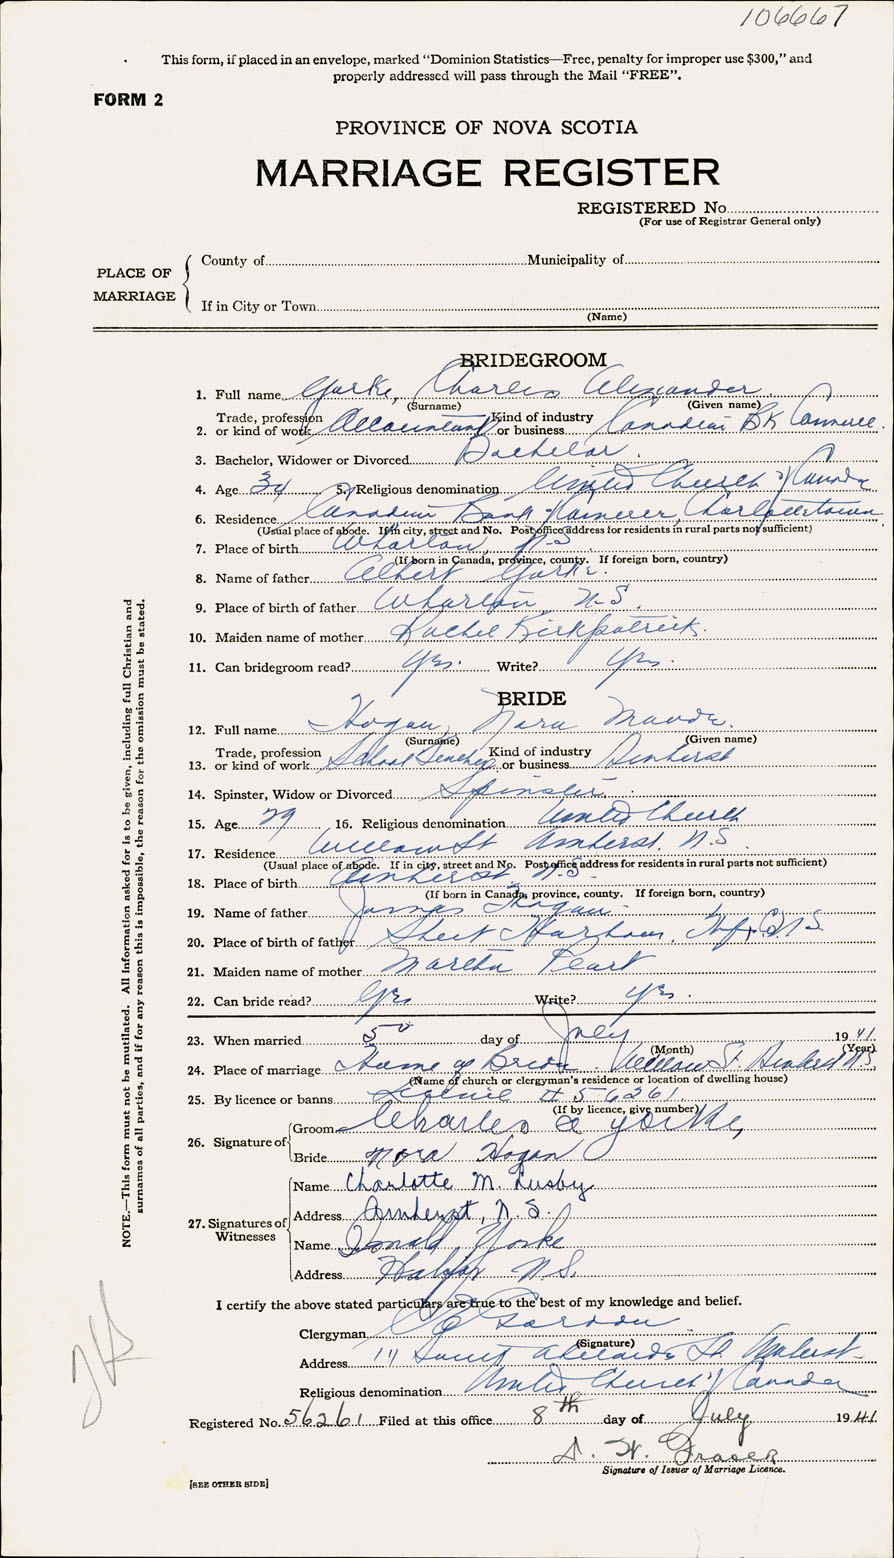 106667
This form, if placed in an envelope, marked "Dominion Statistics—Free, penalty for improper use $300," and
properly addressed will pass through the Mail "FREE".
FORM 2
PROVINCE OF NOVA SCOTIA
MARRIAGE REGISTER
REGISTERED No.
(For use of Registrar General only)
PLACE OF MARRIAGE
County of Municipality of
If in City or Town
(Name)
BRIDEGROOM
1. Full name Yorke, Charles Alexander
(Surname) (Given name)
2. Trade, profession or kind of work Accountant Kind of industry or business Canadian Bk Commerce
3. Bachelor, Widower or Divorced Bachelor
4. Age 34 5. Religious denomination United Church of Canada
6. Residence Canadian Bank of Commerce, Charlottetown
(Usual place of abode. If in city, street and No. Post office address for residents in rural parts not sufficient)
7. Place of birth Wharton, N.S.
(If born in Canada, province, county. If foreign born, country)
8. Name of father Albert Yorke
9. Place of birth of father Wharton, N.S.
10. Maiden name of mother Rachel Kirkpatrick.
11. Can bridegroom read? Yes. Write? Yes.
BRIDE
12. Full name Hogan, Nora Maude.
(Surname) (Given name)
13. Trade, profession or kind of work School Teacher Kind of industry or business Amherst
14. Spinster, Widow or Divorced Spinster
15. Age 29 16. Religious denomination United Church
17. Residence Willow St Amherst. N.S.
(Usual place of abode. If in city, street and No. Post office address for residents in rural parts not sufficient)
18. Place of birth Amherst N.S.
(If born in Canada, province, county. If foreign born, country)
19. Name of father James Hogan
20. Place of birth of father Sheet Harbour, N.S.
21. Maiden name of mother Martha Peart
22. Can bride read? Yes Write? Yes.
23. When married 5 day of July 1941
(Month) (Year)
24. Place of marriage Home of Bride. Willow St. Amherst N.S.
(Name of church or clergyman's residence or location of dwelling house)
25. By licence or banns License # 56261
(If by licence, give number)
26. Signature of
Groom Charles A Yorke
Bride Nora Hogan
27. Signatures of Witnesses
Name Charlotte M. Lusby
Address Amherst, N.S.
Name Donald Yorke
Address Halifax N.S.
I certify the above stated particulars are true to the best of my knowledge and belief.
Clergyman
(Signature)
Address Amherst
Religious denomination United Church of Canada
Registered No. 56261 Filed at this office 8th day of July 1941
Signature of Issuer of Marriage Licence.
[SEE OTHER SIDE]
NOTE.—This form must not be mutilated. All information asked for is to be given, including full Christian and
surnames of all parties, and if for any reason this is impossible, the reason for the omission must be stated.